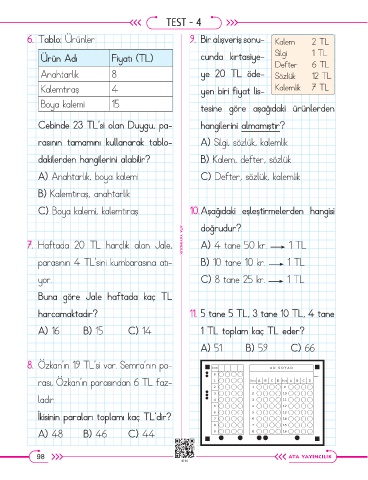 TEST - 4
6. Tablo: Ürünler
Ürün Adı Fiyatı (TL)
Anahtarlık 8
Kalemtıraş 4
Boya kalemi 15
Cebinde 23 TL'si olan Duygu, pa-
rasının tamamını kullanarak tablo-
dakilerden hangilerini alabilir?
A) Anahtarlık, boya kalemi
B) Kalemtıraş, anahtarlık
C) Boya kalemi, kalemtıraş
7. Haftada 20 TL harçlık alan Jale,
parasının 4 TL'sini kumbarasına atı-
yor.
Buna göre Jale haftada kaç TL
harcamaktadır?
A) 16 B) 15 C) 14
8. Özkan'ın 19 TL'si var. Semra'nın pa-
rası, Özkan'ın parasından 6 TL faz-
ladır.
İkisinin paraları toplamı kaç TL'dir?
A) 48 B) 46 C) 44
9. Bir alışveriş sonu-
cunda kırtasiye-
ye 20 TL öde-
yen biri fiyat lis-
Kalem 2 TL
Silgi 1 TL
Defter 6 TL
Sözlük 12 TL
Kalemlik 7 TL
tesine göre aşağıdaki ürünlerden
hangilerini almamıştır?
A) Silgi, sözlük, kalemlik
B) Kalem, defter, sözlük
C) Defter, sözlük, kalemlik
10. Aşağıdaki eşleştirmelerden hangisi
doğrudur?
A) 4 tane 50 kr. → 1 TL
B) 10 tane 10 kr. → 1 TL
C) 8 tane 25 kr. → 1 TL
11. 5 tane 5 TL, 3 tane 10 TL, 4 tane
1 TL toplam kaç TL eder?
A) 51 B) 59 C) 66
AD SOYAD
98
ATA YAYINCILIK